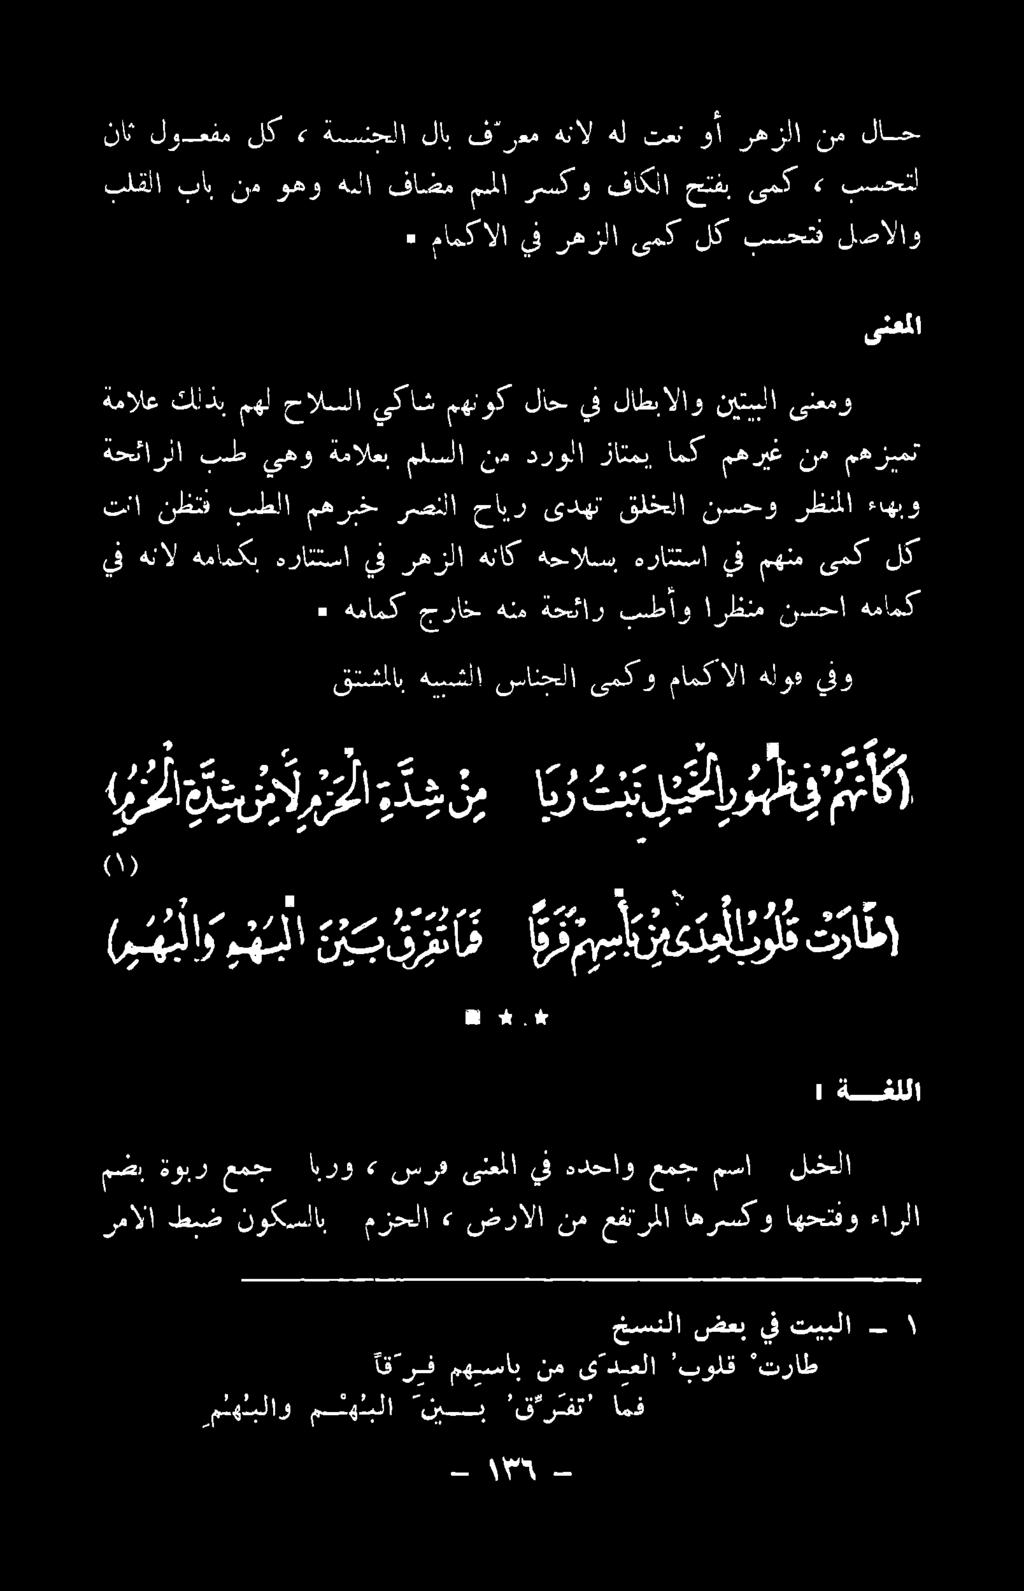 حال من الزهر أو نعت له لانه معرّف بال الجنسية ، كل مفعول ثان
لتحسب ، كمى بفتح الكاف وكسر الميم مضاف اليه وهو من باب القلب
والاصل فتحسب كل كمى الزهر في الاكمام .
المعنى
ومعنى البيتين والابطال في حال كونهم شاكي السلاح لهم بذلك علامة
تميزهم من غيرهم كما يمتاز الورد من السلم بعلامة وهي طيب الرائحة
وبهاء المنظر وحسن الخلق تهدى رياح النصر خبرهم الطيب فتظن انت
كل كمى منهم في استتاره بسلاحه كانه الزهر في استتاره بكمامه لانه في
كمامه احسن منظرا وأطيب رائحة منه خارج كمامه .
وفي قوله الاكمام وكمى الجناس الشبيه بالمشتق
(كَأَنَّهُمْ فِي ظُهُورِ الْخَيْلِ نَبْتُ رُبًا مِنْ شِدَّةِ الْحَزْمِ لَا مِنْ شِدَّةِ الْحُزُمِ)
(١)
(طَارَتْ قُلُوبُ الْعِدَى مِنْ بَأْسِهِمْ فَرَقًا فَمَا تُفَرِّقُ بَيْنَ الْبَهْمِ وَالْبُهَمِ)
اللغـــة :
الخيل اسم جمع واحده في المعنى فرس ، وربا جمع ربوة بضم
الراء وفتحها وكسرها المرتفع من الارض ، الحزم بالسكون ضبط الامر
١ – البيت في بعض النسخ
طارتْ قلوبُ العِدَى من باسِهم فَرَقاً
فما تُفَرّقُ بــين البُهْم والبُهُمِ
– ١٣٦ –